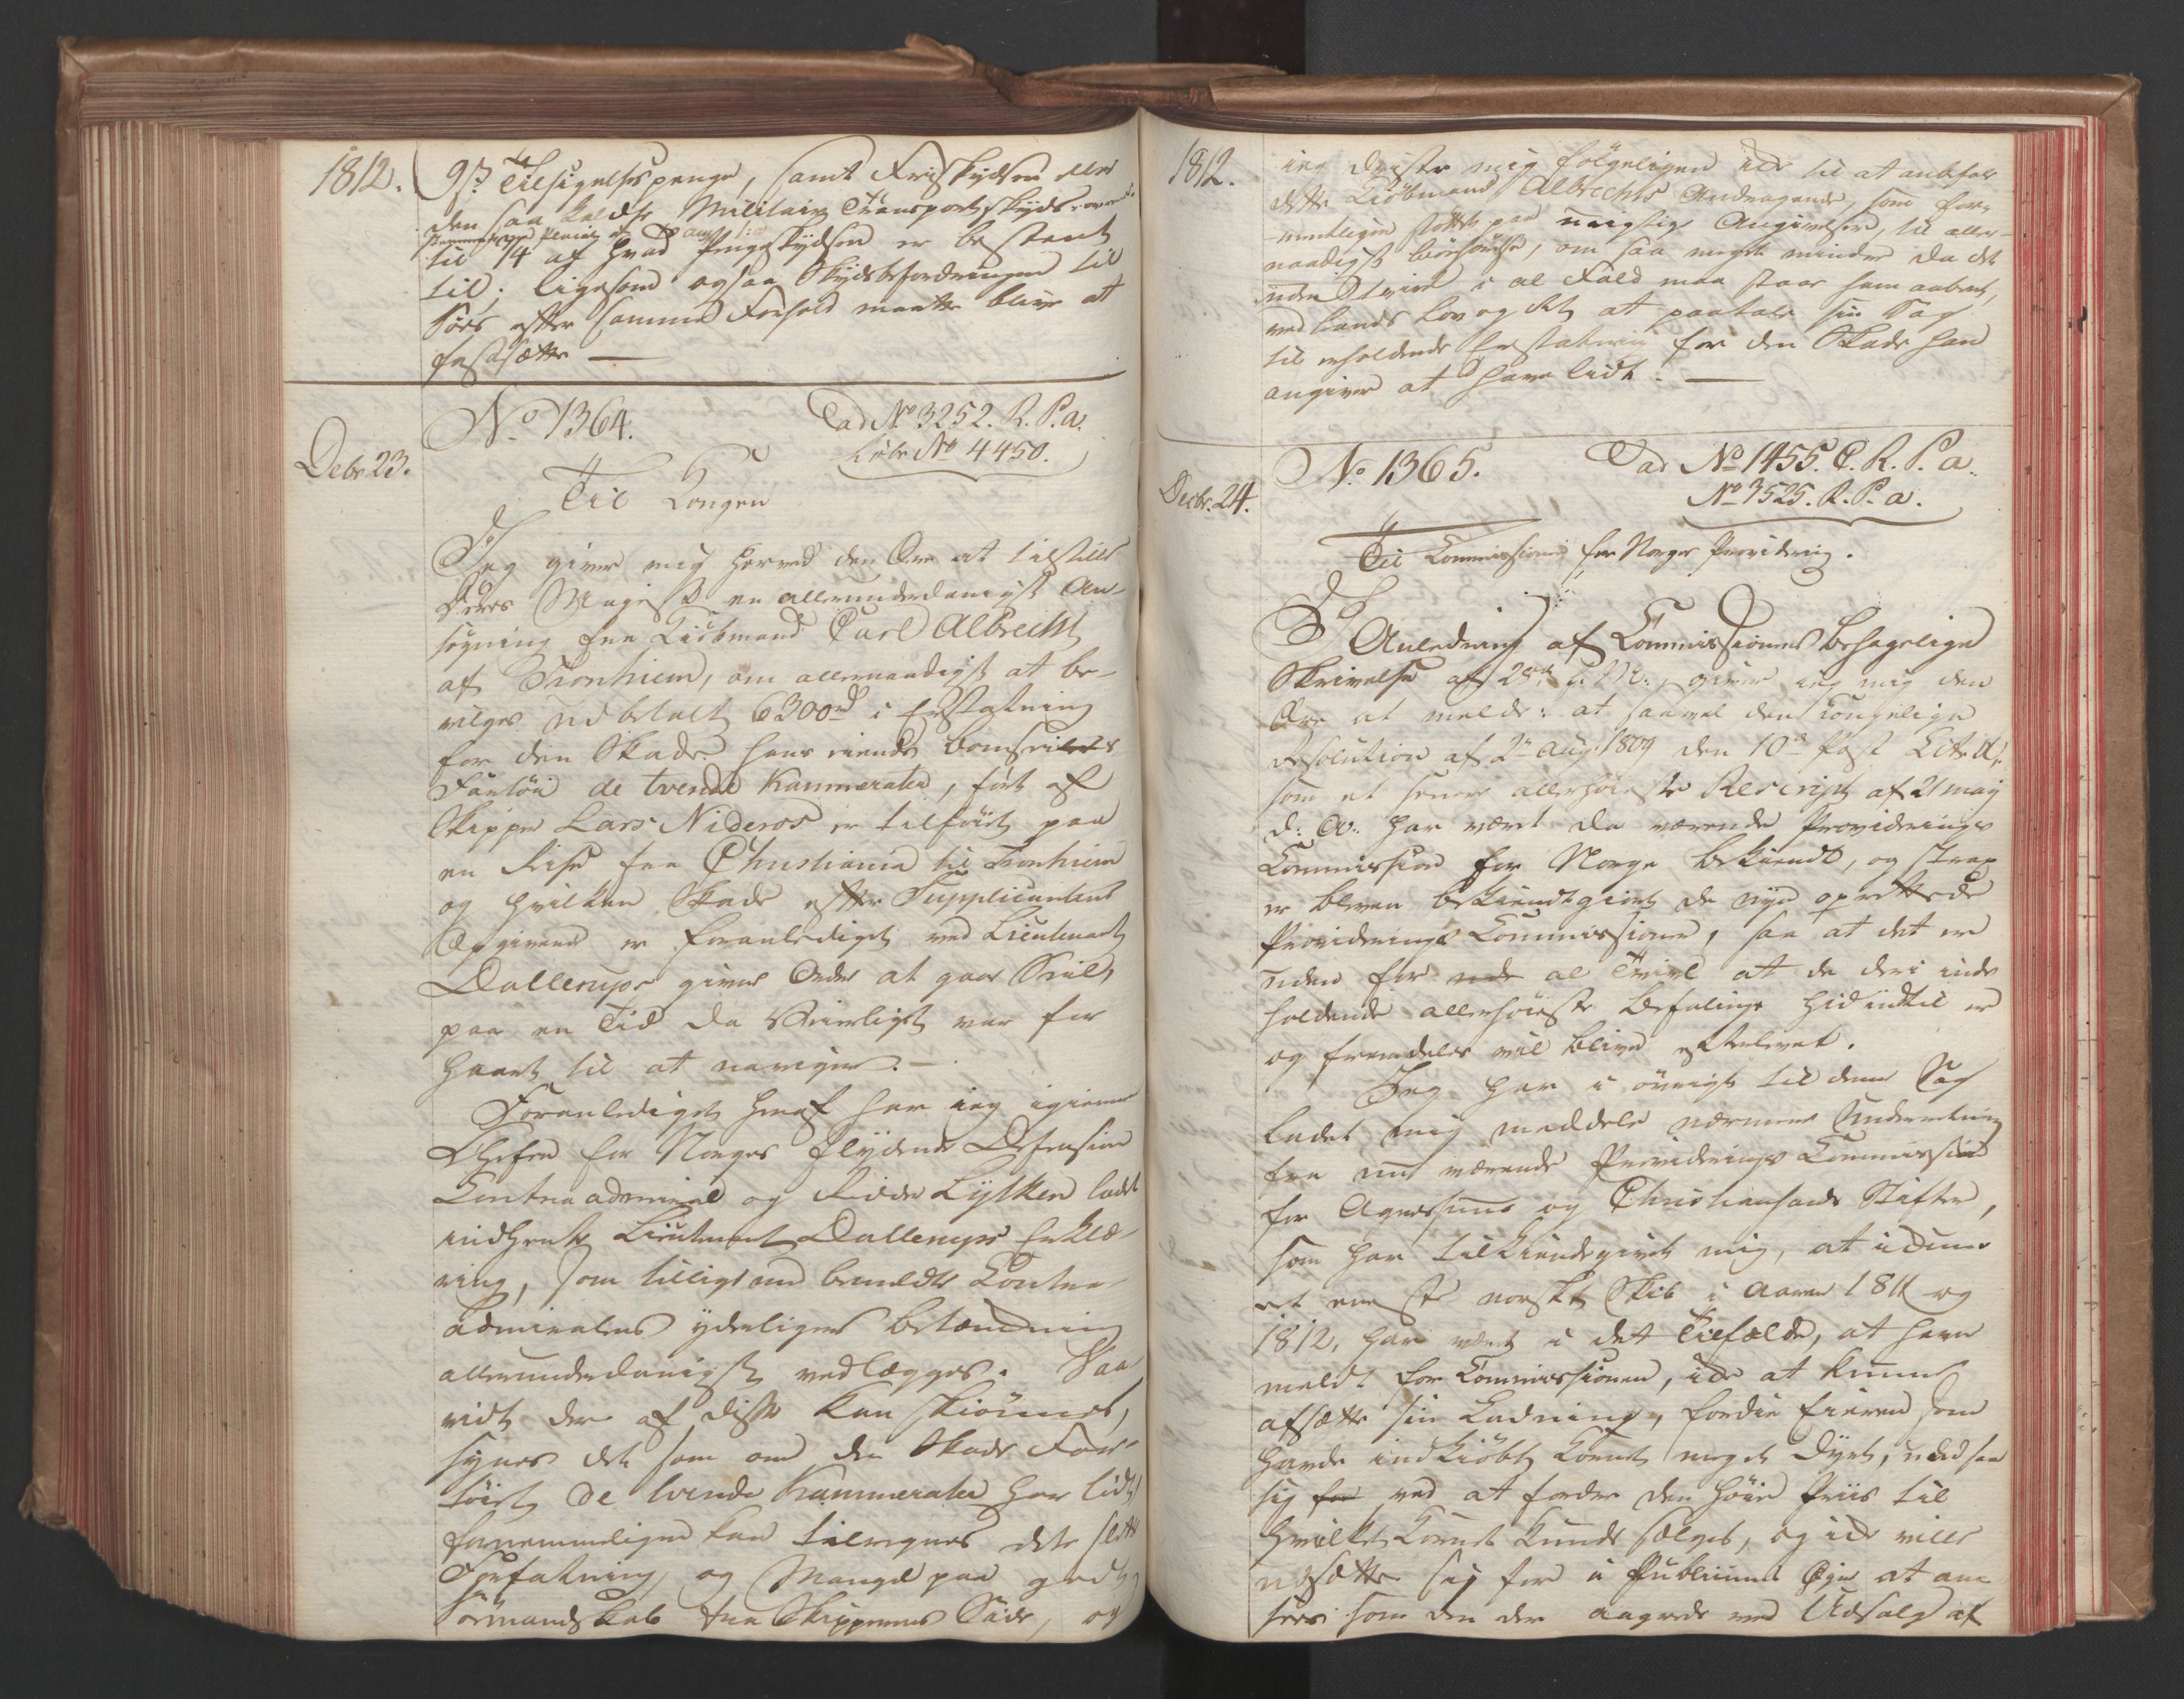 1812.
9 ß Tilsigelsespenge, samt Friskydsen eller
den saa kaldte Militair Transportskyds
til 1/4 af hvad Pengeskydsen er bestemt
til; ligesom ogsaa Skydsbefordringen til
Søes efter samme Forhold maatte blive at
fastsætte —
Debr. 23.
No. 1364.
ad No. 3252. R. P. a.
Løbe No 4450.
Til Kongen
Jeg giver mig herved den Ære at tilstille
Deres Majest. en allerunderdanigst An-
søgning fra Kiøbmand Carl Albrecht
af Tronhiem, om allernaadigst at be-
vilges udbetalt 6300 rd i Erstatning
for den Skade hans eiende
Fartøi de tvende Kammerater, ført af
Skipper Lars Nideros er tilføiet paa
en Reise fra Christiania til Tronhiem
og hvilken Skade efter Supplicantens
Opgivende er foranlediget ved Lieutenant
Dallerups givne Ordre at gaae Seil
paa en Tid da Veirliget var for
haardt til at navigere. —
Foranlediget heraf har ieg igiennem
Chefen for Norges flydende Defension
Contraadmiral og Ridder Lütken ladet
indhente Lieutenant Dallerups Erklæ-
ring, som tilligemed bemeldte Contra-
admirals yderligere Betænkning
allerunderdanigst vedlægges. Saa
vidt der af disse kan skiønnes,
synes det som om den Skade Far-
tøiet de tvende Kammerater har lidt
fornemmeligen kan tilregnes dets slette
Forfatning og Mangel paa godt
Sømandskab fra Skipperens Side, og
1812.
ieg drister mig følgeligen ikke til at anbefale
dette Kiøbmand Albrechts Andragende, som for-
mentligen støttes paa urigtige Angivelser, til aller-
naadigst Bønhørelse, om saa meget mindre da det
uden Tvivl i al Fald maa staae ham aabent,
ved Lands Lov og Ret at paatale sin Sag
til erholdende Erstatning for den Skade han
angiver at have lidt. —
Decbr. 24.
No. 1365.
ad No 1455. C. R. P. a.
No 3525. R. P. a.
Til Commissionen for Norges Providering.
I Anledning af Commissionens behagelige
Skrivelse af 28de f. M., giver ieg mig den
Ære at melde: at saavel den kongelige
Resolution af 2n Aug. 1809 den 10de Post Litr. A,
som et senere allerhøieste Rescript af 21 may
d: A: har været da værende Providerings
Commission for Norge bekiendt, og strax
er bleven bekiendtgiort de nye oprettede
Providerings Commissioner, saa at det er
uden for al Tvivl at de deri inde
holdende allerhøieste Befalinger hidindtil er
og fremdeles vil blive efterlevet.
Jeg har i øvrigt til denne Sag
ladet mig meddele nærmere Underretning
fra nu værende Providerings Commission
for Aggershuus og Christiansands Stifter,
som har tilkiendegivet mig, at
et eneste norsk Skib i Aarene 1811 og
1812, har været i det Tilfælde, at have
meldt for Commissionen, ikke at kunne
afsætte sin Ladning, fordie Eieren som
havde indkiøbt Kornet meget dyrt, undsaae
sig for ved at fordre den høie Priis til
hvilke Kornet kunde sælges, og ikke ville
udsætte sig for i Publicums Øine at an
sees som den der aagrede ved Udsalg af